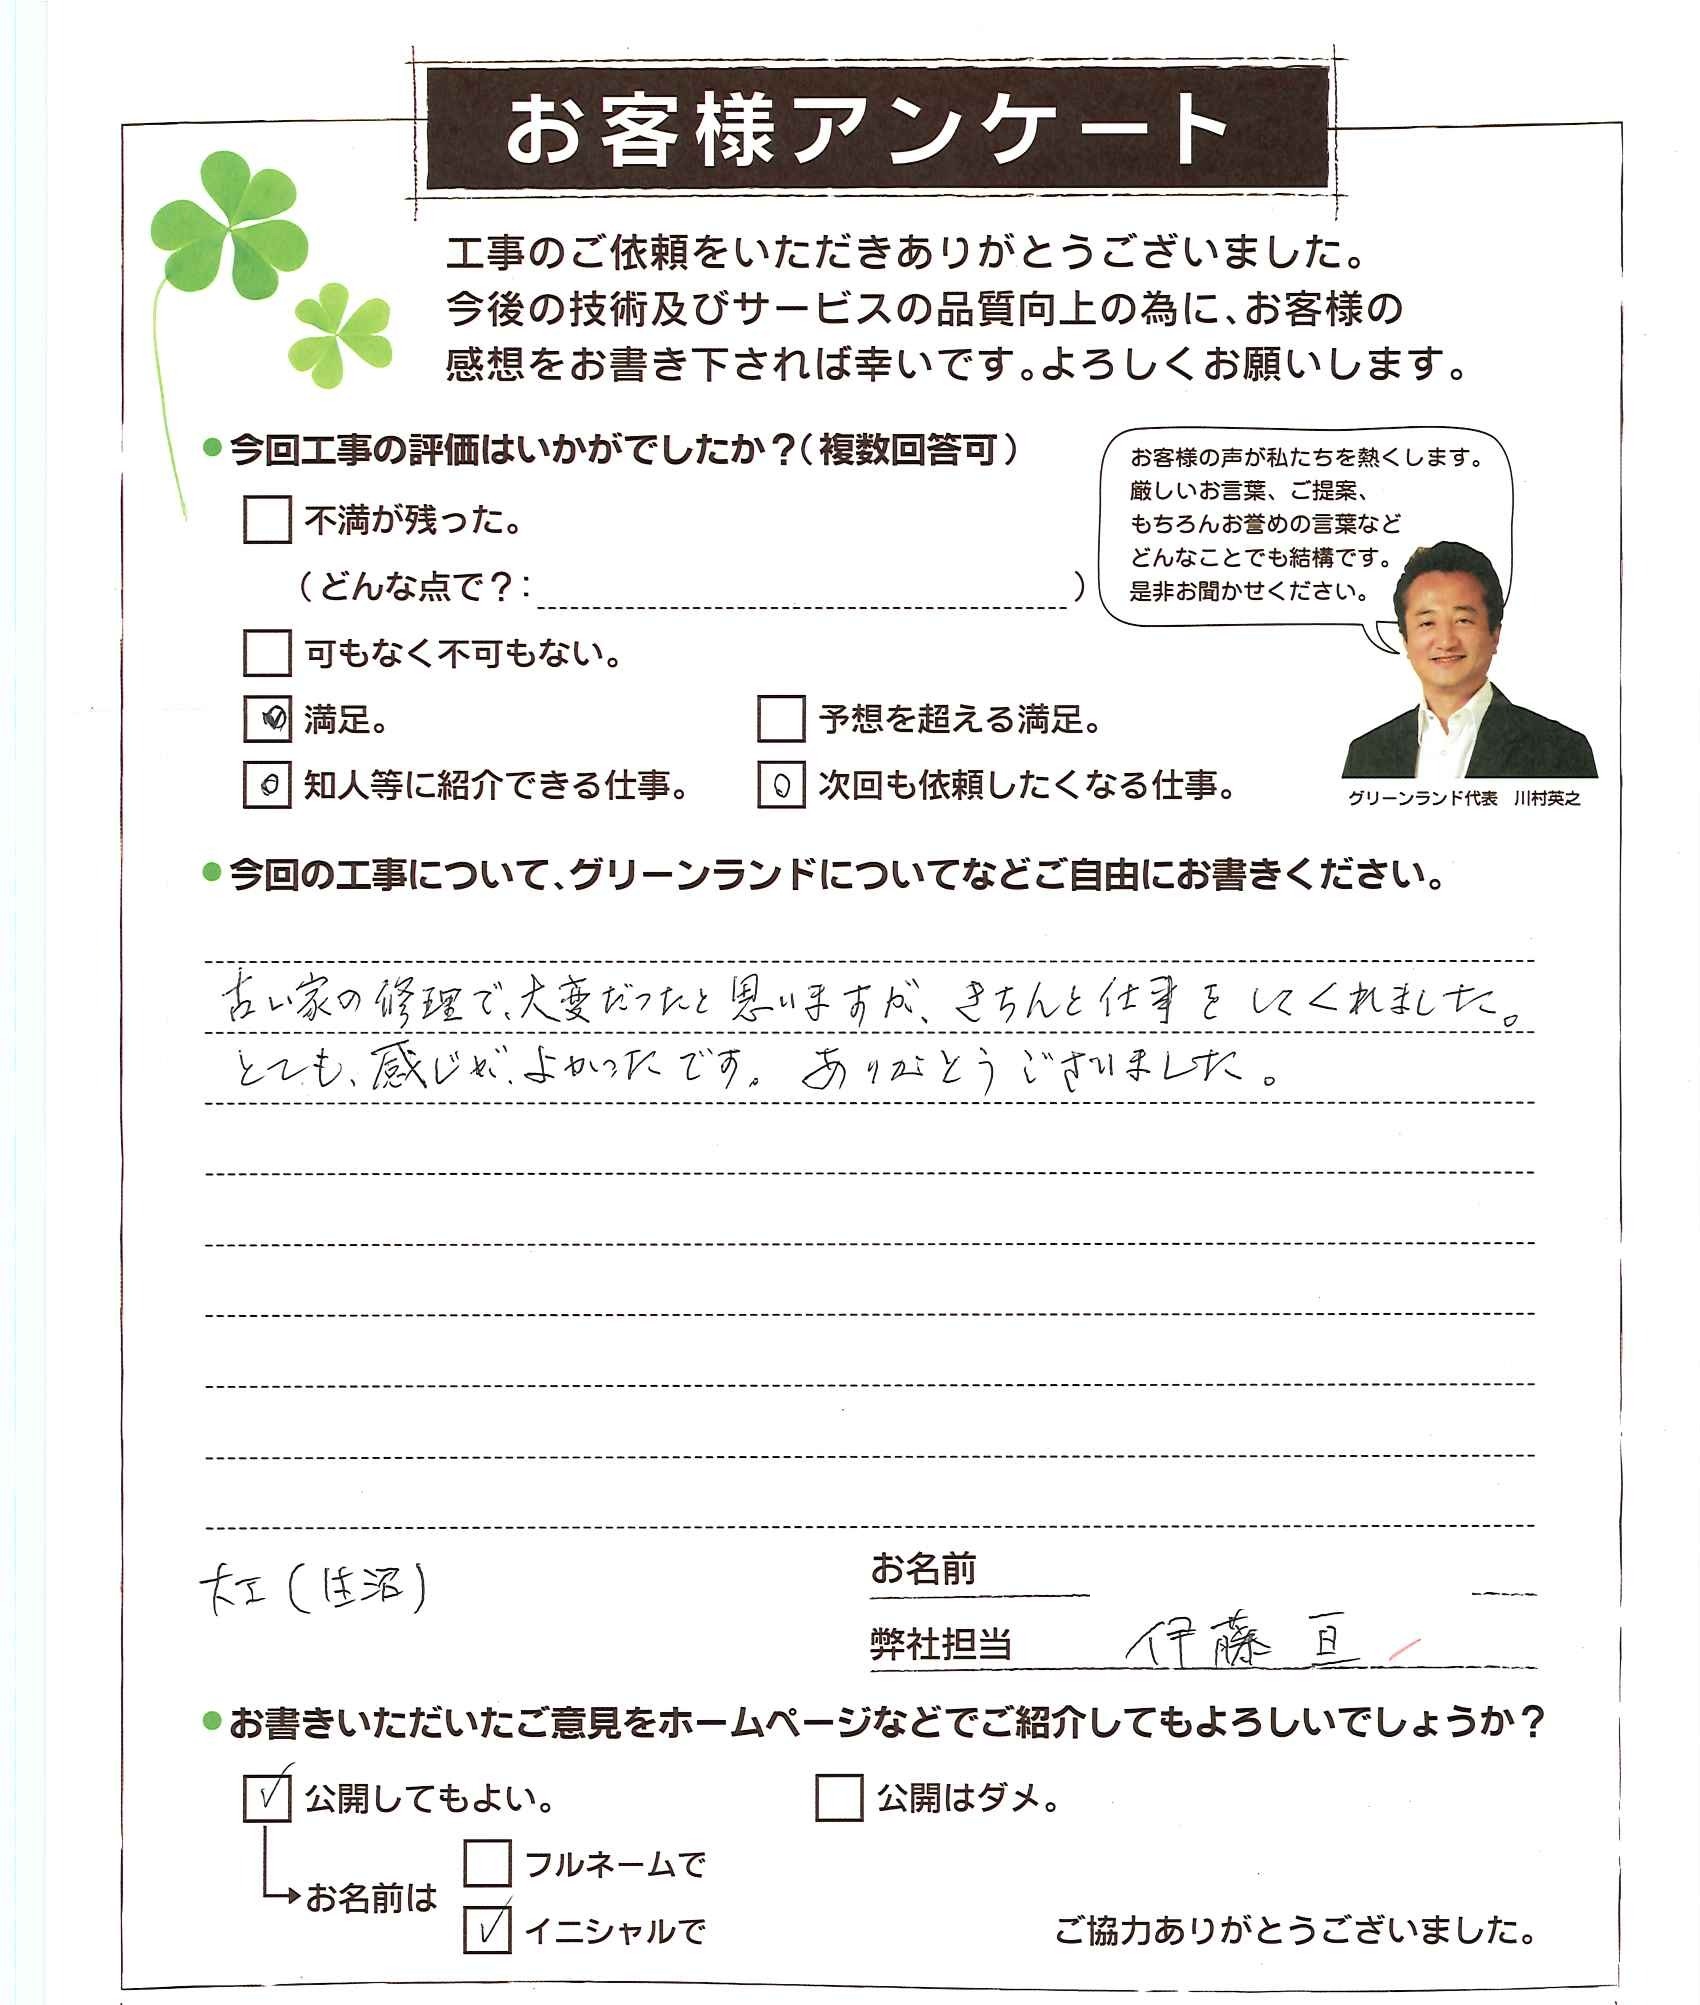 お客様アンケート
工事のご依頼をいただきありがとうございました。
今後の技術及びサービスの品質向上の為に、お客様の
感想をお書き下されば幸いです。よろしくお願いします。
●今回工事の評価はいかがでしたか？（複数回答可）
不満が残った。
（どんな点で？：　　　　）
可もなく不可もない。
満足。
予想を超える満足。
知人等に紹介できる仕事。
次回も依頼したくなる仕事。
お客様の声が私たちを熱くします。
厳しいお言葉、ご提案、
もちろんお誉めの言葉など
どんなことでも結構です。
是非お聞かせください。
グリーンランド代表　川村英之
●今回の工事について、グリーンランドについてなどご自由にお書きください。
古い家の修理で、大変だったと思いますが、きちんと仕事をしてくれました。
とても、感じが、よかったです。ありがとうございました。
大工（生沼）
お名前
弊社担当　伊藤　亘
●お書きいただいたご意見をホームページなどでご紹介してもよろしいでしょうか？
公開してもよい。
公開はダメ。
お名前は
フルネームで
イニシャルで
ご協力ありがとうございました。